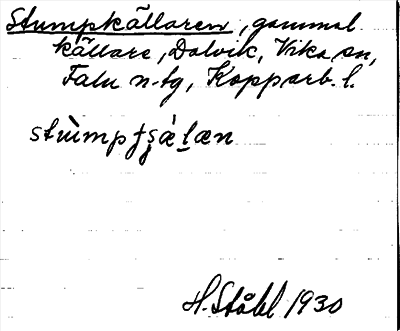 Stumpkällaren, gammal
källare, Dalvik, Vika sn,
Falu n. tg, Kopparb. l.
H. Ståhl 1930